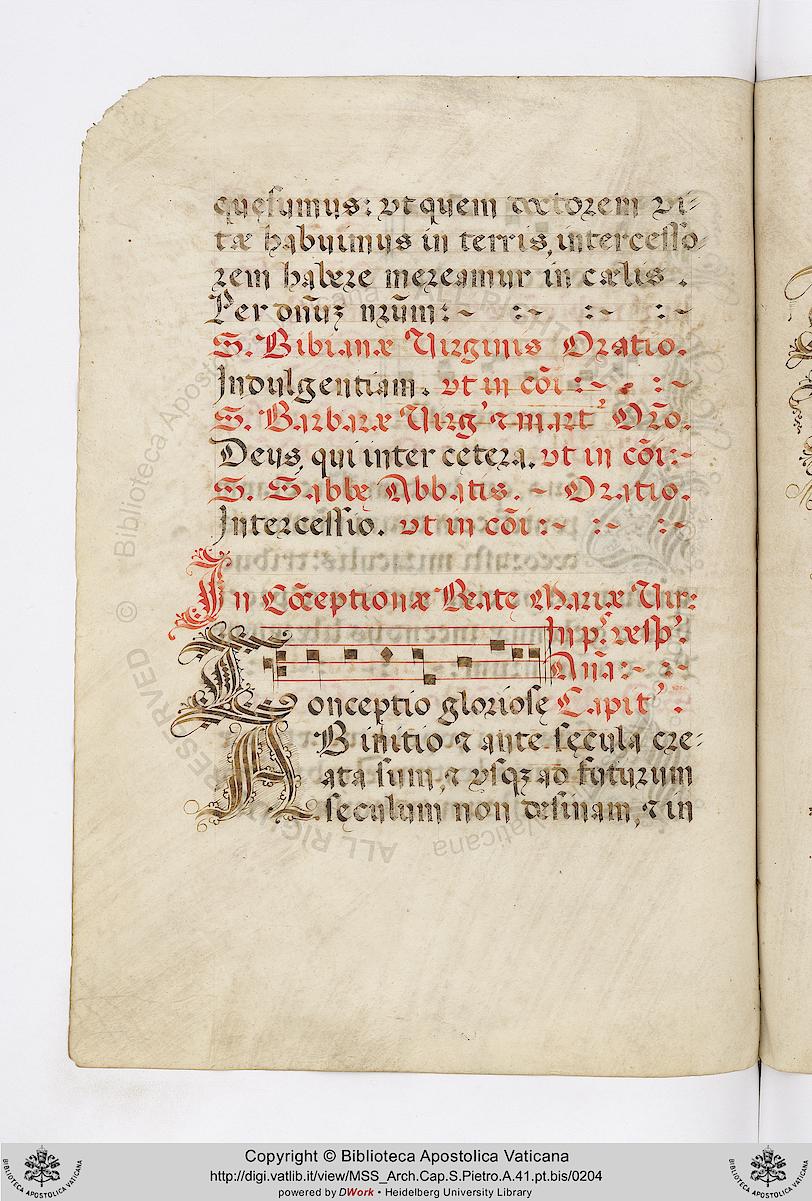 quęsumus: vt quem doctorem vi-
tæ habuimus in terris, intercesso-
rem habere mereamur in cælis .
Per dnūz nrūm: ~ :~ :~ :~
S. Bibianæ Virginis Oratio.
Indulgentiam. vt in cōi :~ . :~
S. Barbaræ Virg' & mart' Orō.
Deus, qui inter cetera. vt in cōi:~
S. Sabbę Abbatis. ~ Oratio.
Intercessio. vt in cōi :~ :~ :~
In Cōceptionæ Beate Mariæ Vir:
In p' vesp':
Aña: ~ :~
Conceptio gloriosę Capit' :
AB initio & ante sęcula cre-
ata sum, & vsqz ad futurum
sęculum non desinam, & in
© Biblioteca Apostolica Vaticana ALL RIGHTS RESERVED
Copyright © Biblioteca Apostolica Vaticana
http://digi.vatlib.it/view/MSS_Arch.Cap.S.Pietro.A.41.pt.bis/0204
powered by DWork • Heidelberg University Library
BIBLIOTECA APOSTOLICA VATICANA
BIBLIOTECA APOSTOLICA VATICANA